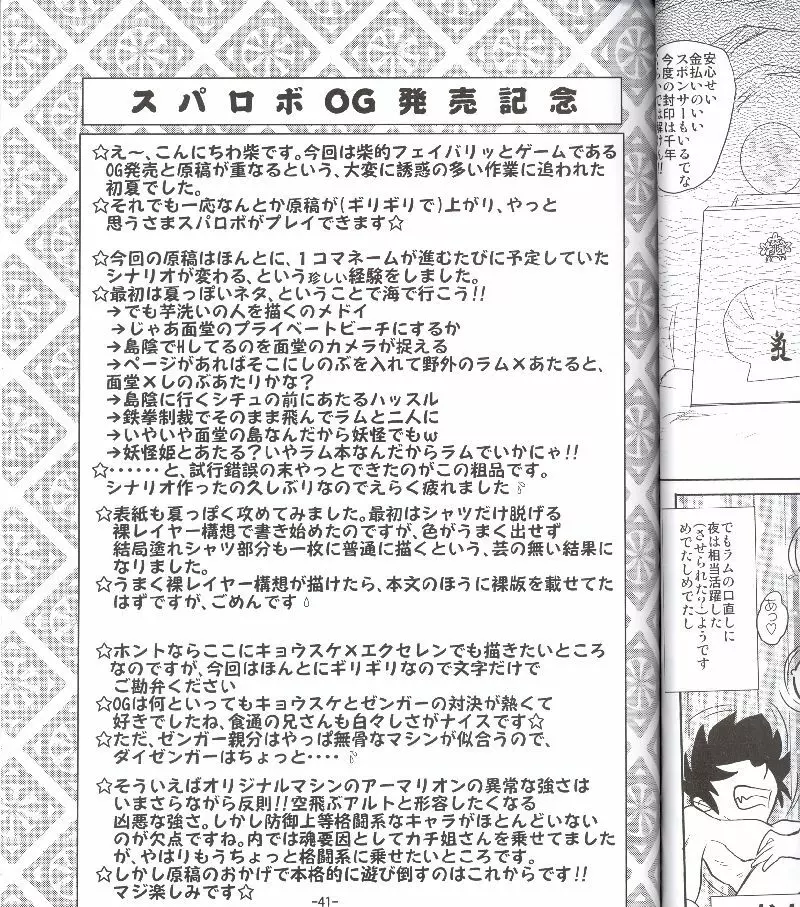 スパロボOG発売記念
☆え～、こんにちわ柴です。今回は柴的フェイバリッとゲームである
OG発売と原稿が重なるという、大変に誘惑の多い作業に追われた
初夏でした。
☆それでも一応なんとか原稿が(ギリギリで)上がり、やっと
思うさまスパロボがプレイできます☆
☆今回の原稿はほんとに、1コマネームが進むたびに予定していた
シナリオが変わる、という珍しい経験をしました。
☆最初は夏っぽいネタ、ということで海で行こう!!
→でも芋洗いの人を描くのメドイ
→じゃあ面堂のプライベートビーチにするか
→島陰でHしてるのを面堂のカメラが捉える
→ページがあればそこにしのぶを入れて野外のラム×あたると、
面堂×しのぶあたりかな?
→島陰に行くシチュの前にあたるハッスル
→鉄拳制裁でそのまま飛んでラムと二人に
→いやいや面堂の島なんだから妖怪でもω
→妖怪姫とあたる?いやラム本なんだからラムでいかにゃ!!
☆・・・・・・と、試行錯誤の末やっとできたのがこの粗品です。
シナリオ作ったの久しぶりなのでえらく疲れました
☆表紙も夏っぽく攻めてみました。最初はシャツだけ脱げる
裸レイヤー構想で書き始めたのですが、色がうまく出せず
結局塗れシャツ部分も一枚に普通に描くという、芸の無い結果に
なりました。
☆うまく裸レイヤー構想が描けたら、本文のほうに裸版を載せてた
はずですが、ごめんです
☆ホントならここにキョウスケ×エクセレンでも描きたいところ
なのですが、今回はほんとにギリギリなので文字だけで
ご勘弁ください
☆OGは何といってもキョウスケとゼンガーの対決が熱くて
好きでしたね、食通の兄さんも白々しさがナイスです☆
☆ただ、ゼンガー親分はやっぱ無骨なマシンが似合うので、
ダイゼンガーはちょっと・・・・
☆そういえばオリジナルマシンのアーマリオンの異常な強さは
いまさらながら反則!!空飛ぶアルトと形容したくなる
凶悪な強さ。しかし防御上等格闘系なキャラがほとんどいない
のが欠点ですね。内では魂要因としてカチ姐さんを乗せてました
が、やはりもうちょっと格闘系に乗せたいところです。
☆しかし原稿のおかげで本格的に遊び倒すのはこれからです!!
マジ楽しみです☆
-41-
安心せい
金払いのいい
スポンサーもいるでな
今度の封印は千年
でもラムの口直しに
夜は相当活躍した
(させられた?)ようです
めでたしめでたし
あっ♡